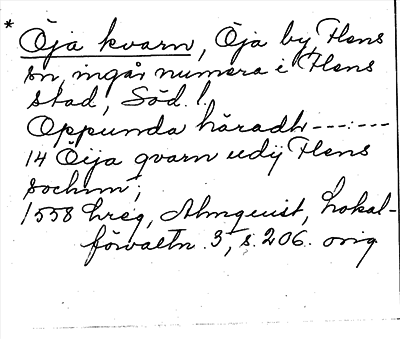 * Öja kvarn, Öja by, Flens
sn, ingår numera i Flens
stad, Söd. l.
Oppunda häradh ---:---
14 Öija qvarn udij Flens
sochnn,
1558 hreg, Almquist, Lokal-
förvaltn. 3, s. 206. orig